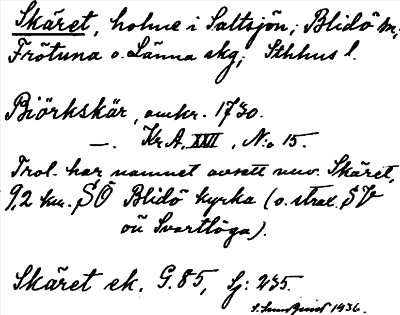 Skäret, holme i Saltsjön; Blidö sn,
Frötuna o. Länna skg; Sthlms l.
Biörkskär, omkr. 1730.
—. Kr A, XVI, N:o 15.
Trol. har namnet avsett nuv. Skäret,
9,2 km. SÖ Blidö kyrka (o. strax SV
om Svartlöga).
Skäret ek. G. 85, Sj: 235.
1936.